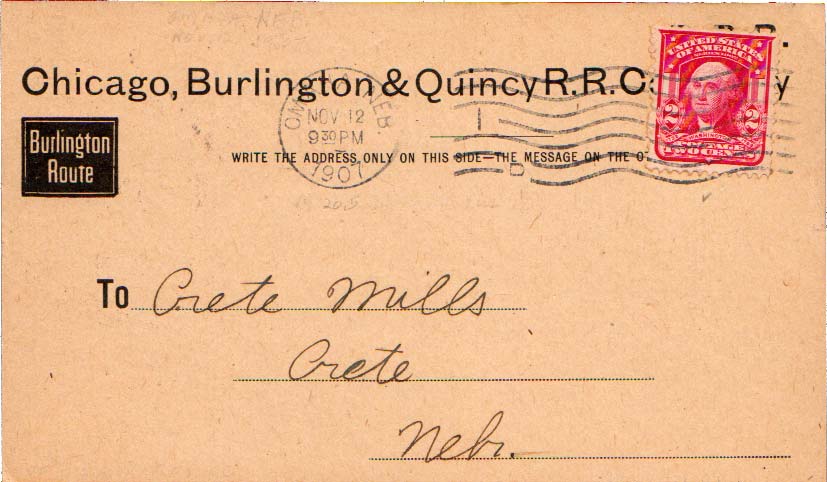 R. R. B.
Chicago, Burlington & Quincy R.R. Co y
OMAHA, NEB.
NOV 12
9 30 PM
1907
Burlington
Route
WRITE THE ADDRESS ONLY ON THIS SIDE—THE MESSAGE ON THE O
D
UNITED STATES
OF AMERICA
2 2
WASHINGTON
POSTAGE
TWO CENTS
To Crete Mills
Crete
Nebr.